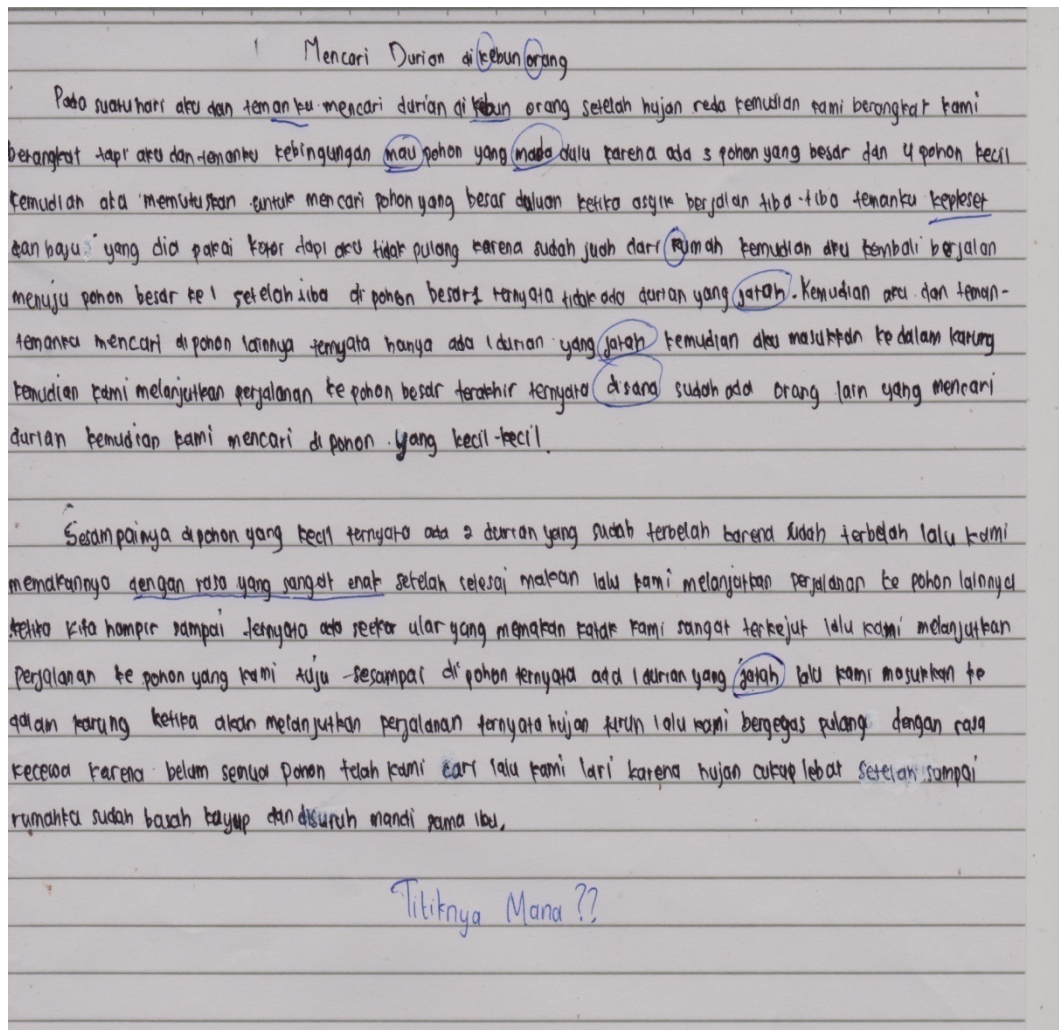 Mencari Durian di kebun orang
Pada suatu hari aku dan temanku mencari durian di kebun orang setelah hujan reda kemudian kami berangkat kami
berangkat tapi aku dan temanku kebingungan mau pohon yang mada dulu karena ada 3 pohon yang besar dan 4 pohon kecil
kemudian aku memutuskan untuk mencari pohon yang besar duluan ketika asyik berjalan tiba-tiba temanku kepleset
dan baju yang dia pakai kotor tapi aku tidak pulang karena sudah jauh dari Rumah kemudian aku kembali berjalan
menuju pohon besar ke 1 setelah tiba di pohon besar 1 ternyata tidak ada durian yang jatah. Kemudian aku dan teman-
temanku mencari di pohon lainnya ternyata hanya ada 1 durian yang jatah kemudian aku masukkan ke dalam karung
kemudian kami melanjutkan perjalanan ke pohon besar terakhir ternyata disana sudah ada orang lain yang mencari
durian kemudian kami mencari di pohon yang kecil-kecil.
Sesampainya di pohon yang kecil ternyata ada 2 durian yang sudah terbelah karena sudah terbelah lalu kami
memakannya dengan rasa yang sangat enak setelah selesai makan lalu kami melanjutkan perjalanan ke pohon lainnya
ketika kita hampir sampai ternyata ada seekor ular yang memakan katak kami sangat terkejut lalu kami melanjutkan
perjalanan ke pohon yang kami tuju sesampai di pohon ternyata ada 1 durian yang jatah lalu kami masukan ke
dalam karung ketika akan melanjutkan perjalanan ternyata hujan turun lalu kami bergegas pulang dengan rasa
kecewa karena belum semua pohon telah kami cari lalu kami lari karena hujan cukup lebat setelah sampai
rumahku sudah basah kuyup dan disuruh mandi sama ibu.
Titiknya Mana ??